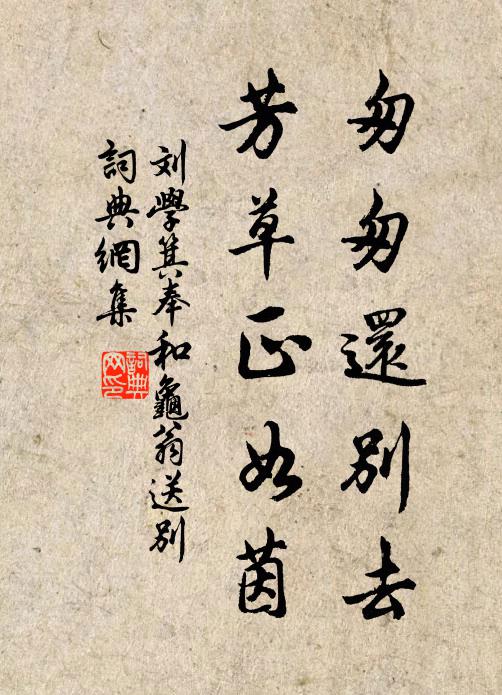 匆匆還別去
芳草正如茵
刘學箕奉和龜翁送別
詞典網集
詞典
网印